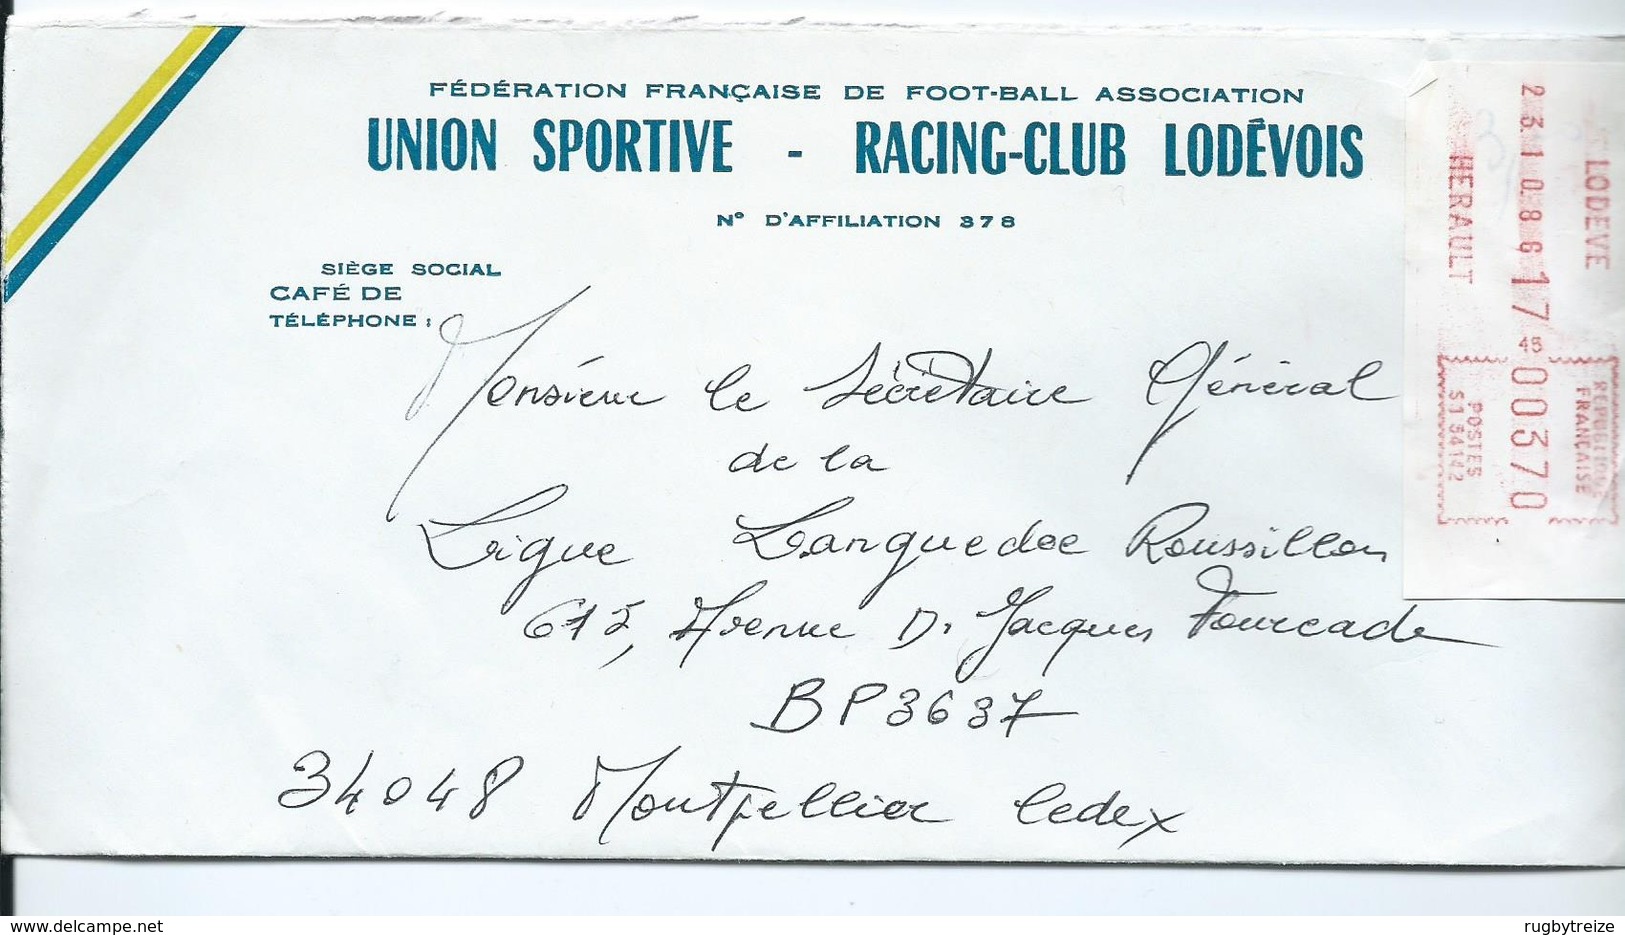 FÉDÉRATION FRANÇAISE DE FOOT-BALL ASSOCIATION
UNION SPORTIVE - RACING-CLUB LODÉVOIS
N° D'AFFILIATION 378
SIÈGE SOCIAL
CAFÉ DE
TÉLÉPHONE :
Monsieur le Secrétaire Général
de la
Ligue Languedoc Roussillon
612, Avenue Dr Jacques Fourcade
BP 3637
34048 Montpellier Cedex
LODEVE
23.10.86 17 45
HERAULT
REPUBLIQUE
FRANÇAISE
00370
POSTES
S154142
rugbytreize